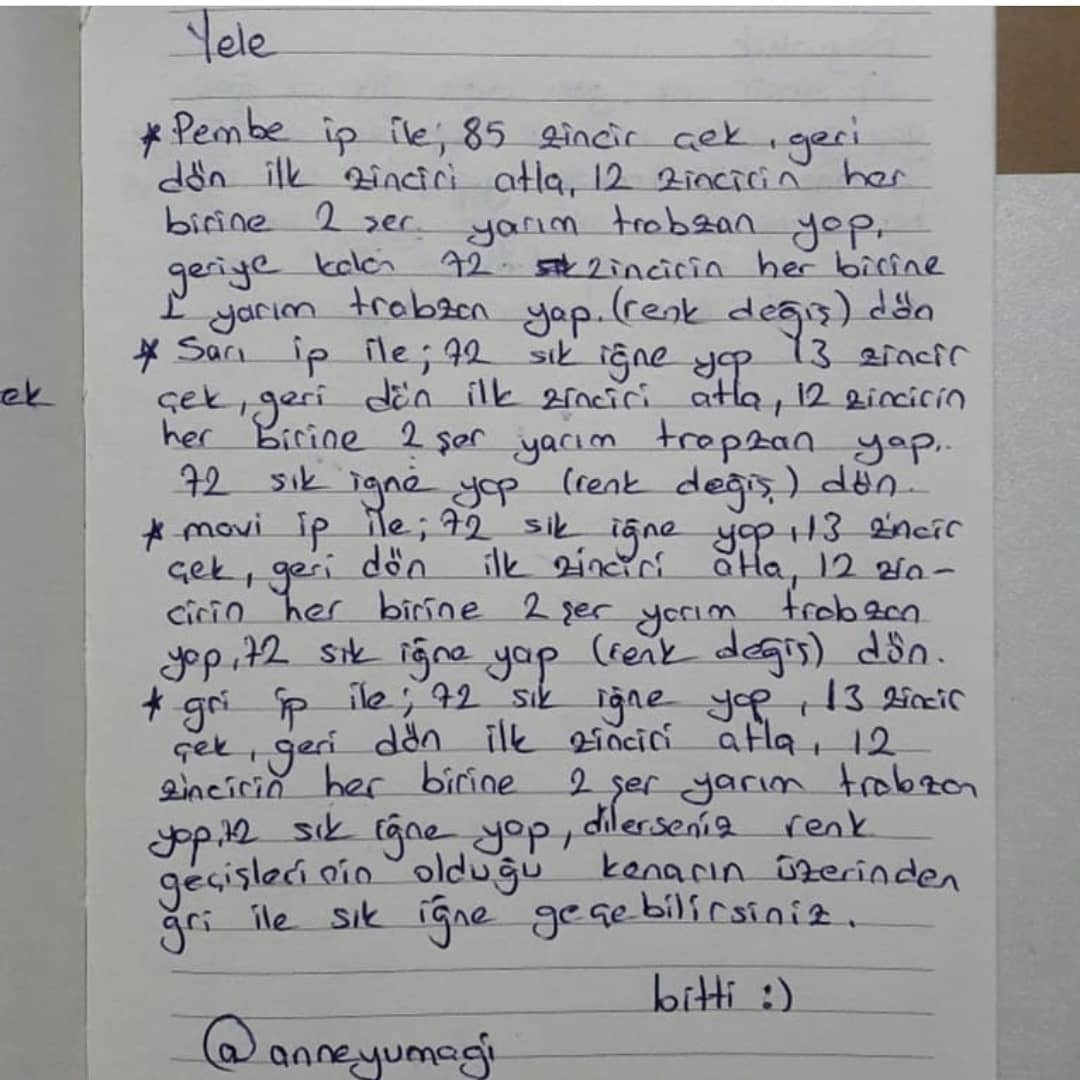 Yele
* Pembe ip ile; 85 zincir çek, geri
dön ilk zinciri atla, 12 zincirin her
birine 2 şer yarım trabzan yap,
geriye kalan 72 zincirin her birine
1 yarım trabzan yap. (renk değiş) dön
* Sarı ip ile; 72 sık iğne yap 13 zincir
çek, geri dön ilk zinciri atla, 12 zincirin
her birine 2 şer yarım tropzan yap.
72 sık iğne yap (renk değiş) dön.
* mavi ip ile; 72 sık iğne yap, 13 zincir
çek, geri dön ilk zinciri atla, 12 zin-
cirin her birine 2 şer yarım trabzan
yap, 72 sık iğne yap (renk değiş) dön.
* gri ip ile; 72 sık iğne yap, 13 zincir
çek, geri dön ilk zinciri atla, 12
zincirin her birine 2 şer yarım trabzan
yap, 72 sık iğne yap, dilerseniz renk
geçişlerinin olduğu kenarın üzerinden
gri ile sık iğne geçebilirsiniz.
bitti :)
@anneyumagi
ek